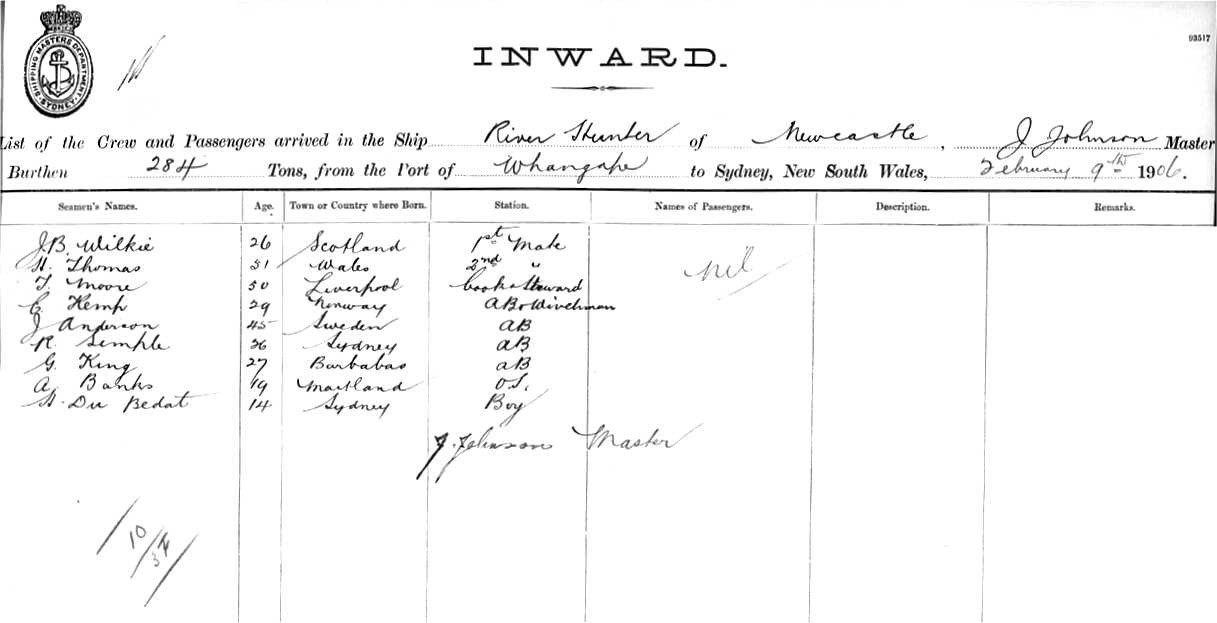 SHIPPING MASTERS DEPARTMENT. SYDNEY
93517
INWARD.
List of the Crew and Passengers arrived in the Ship River Hunter of Newcastle, J Johnson Master
Burthen 284 Tons, from the Port of Whangape to Sydney, New South Wales, February 9th 1906.
Seamen's Names. Age. Town or Country where Born. Station. Names of Passengers. Description. Remarks.
J.B. Wilkie 26 Scotland 1st Mate
H. Thomas 51 Wales 2nd "
T. Moore 50 Liverpool Cook & Steward nil
E Kemp 29 Norway AB & Winchman
J Anderson 45 Sweden AB
R. Semple 26 Sydney AB
G. King 27 Barbabas AB
A. Banks 19 Maitland O.S.
H. Du Bedat 14 Sydney Boy
J. Johnson Master
10